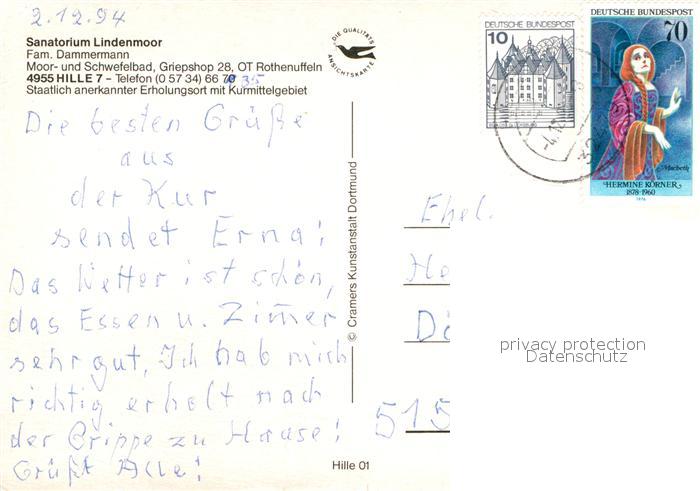 2.12.94
Sanatorium Lindenmoor
Fam. Dammermann
Moor- und Schwefelbad, Griepshop 28, OT Rothenuffeln
4955 HILLE 7 – Telefon (0 57 34) 66 70 35
Staatlich anerkannter Erholungsort mit Kurmittelgebiet
DIE QUALITÄTS
ANSICHTSKARTE
DEUTSCHE BUNDESPOST
10
DEUTSCHE BUNDESPOST
70
Macbeth
HERMINE KÖRNER
1878-1960
1976
Die besten Grüße
aus
der Kur
sendet Erna!
Das Wetter ist schön,
das Essen u. Zimer
sehr gut, Ich hab mich
richtig erholt nach
der Grippe zu Hause!
Grüßt Alle!
© Cramers Kunstanstalt Dortmund
Ehel.
He
Dü
515
privacy protection
Datenschutz
Hille 01